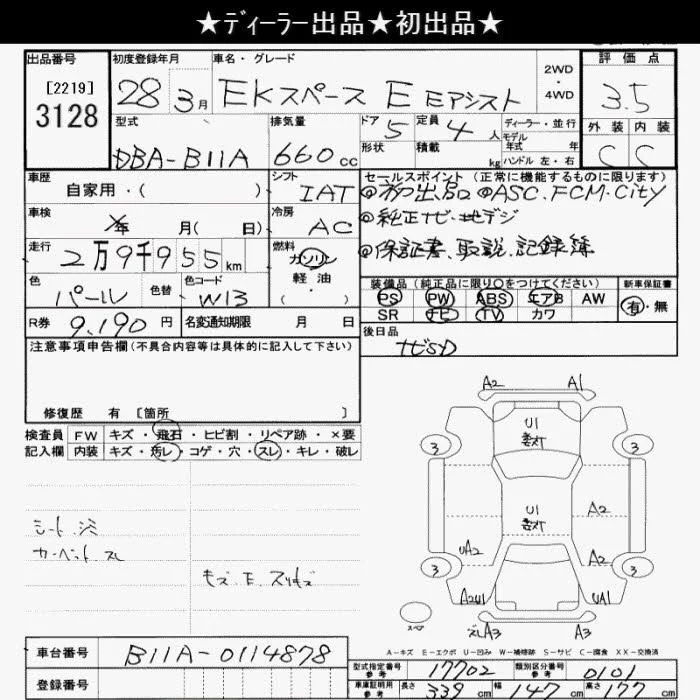 ★ディーラー出品★初出品★
出品番号 初度登録年月 車名・グレード 2WD・4WD 評価点
[2219] 3128 28年 3月 EKスペース E Eアシスト 3.5
型式 排気量 ドア 5 定員 4人 ディーラー・並行 外装 内装
DBA-B11A 660cc 形状 積載 kg モデル年式 年 ハンドル 左・右 C C
車歴 自家用・( ) シフト IAT セールスポイント (正常に機能するものに限ります)
◎初出品 ◎ASC.FCM.City
車検 年 月( 日) 冷房 AC ◎純正ナビ・地デジ
走行 2万9千955km 燃料 ガソリン 軽油 ・( ) ◎保証書、取説、記録簿
色 パール 色替 色コード W13 装備品 (純正品に限り〇をつけてください) 新車保証書
PS PW ABS エアB AW 有・無
SR ナビ TV カワ
R券 9,190円 名変通知期限 月 日 後日品
ナビSD
注意事項申告欄(不具合内容等は具体的に記入して下さい)
修復歴 有 [箇所 ]
検査員 FW キズ・飛石・ヒビ割・リペア跡・×要
記入欄 内装 キズ・汚レ・コゲ・穴・スレ・キレ・破レ
A2 A1
U1
3 3
U1
A2
UA2 A2
3 3
A2U1 UA1
スペア A3 A3
シート シミ
カーペット スレ
A-キズ E-エクボ U-凹み W-補修跡 S-サビ C-腐食 XX-交換済
車台番号 B11A-0114878
登録番号
型式指定番号 参考 17702 類別区分番号 参考 0101
車庫証明用 参考 長さ 339cm 幅 147cm 高さ 177cm